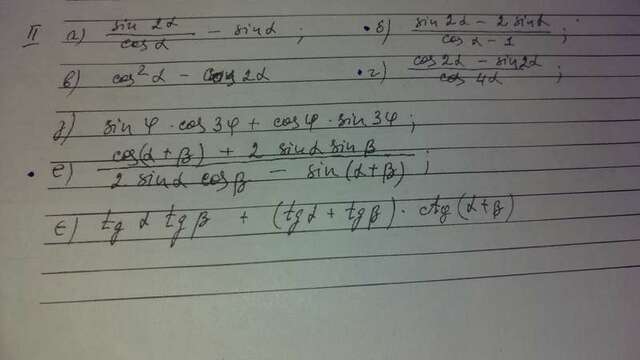 II а) sin 2α / cos α − sin α ; • б) sin 2α − 2 sin α / cos α − 1 ;
в) cos² α − cos 2α • г) cos 2α − sin 2α / cos 4α ;
д) sin φ · cos 3φ + cos φ · sin 3φ ;
• е) cos(α + β) + 2 sin α sin β / 2 sin α cos β − sin (α + β) ;
є) tg α tg β + (tg α + tg β) · ctg (α + β)